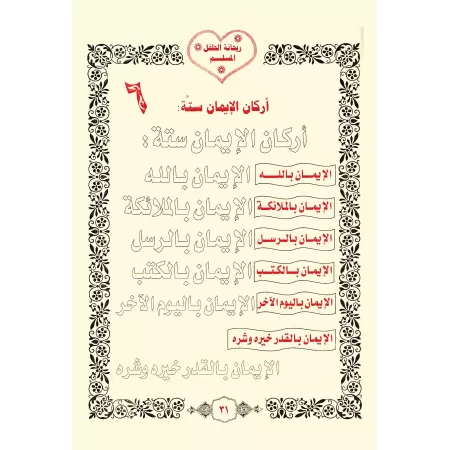 ريحانة الطفل
المسلم
٦
أركان الإيمان ستة:
أركان الإيمان ستة :
الإيمان بالله الإيمان بالله
الإيمان بالملائكة الإيمان بالملائكة
الإيمان بالرسل الإيمان بالرسل
الإيمان بالكتب الإيمان بالكتب
الإيمان باليوم الآخر الإيمان باليوم الآخر
الإيمان بالقدر خيره وشره
الإيمان بالقدر خيره وشره
٣١